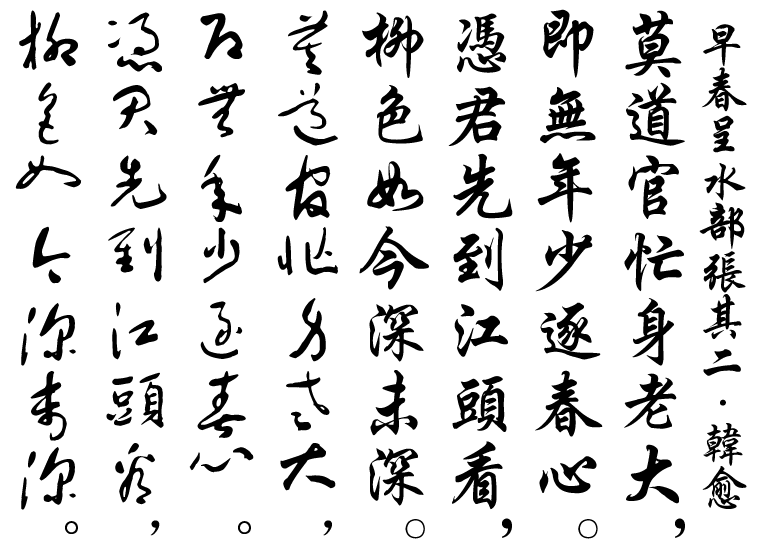 早春呈水部張其二・韓愈
莫道官忙身老大，
即無年少逐春心。
憑君先到江頭看，
柳色如今深未深。
莫道官忙身老大，
即無年少逐春心。
憑君先到江頭看，
柳色如今深未深。